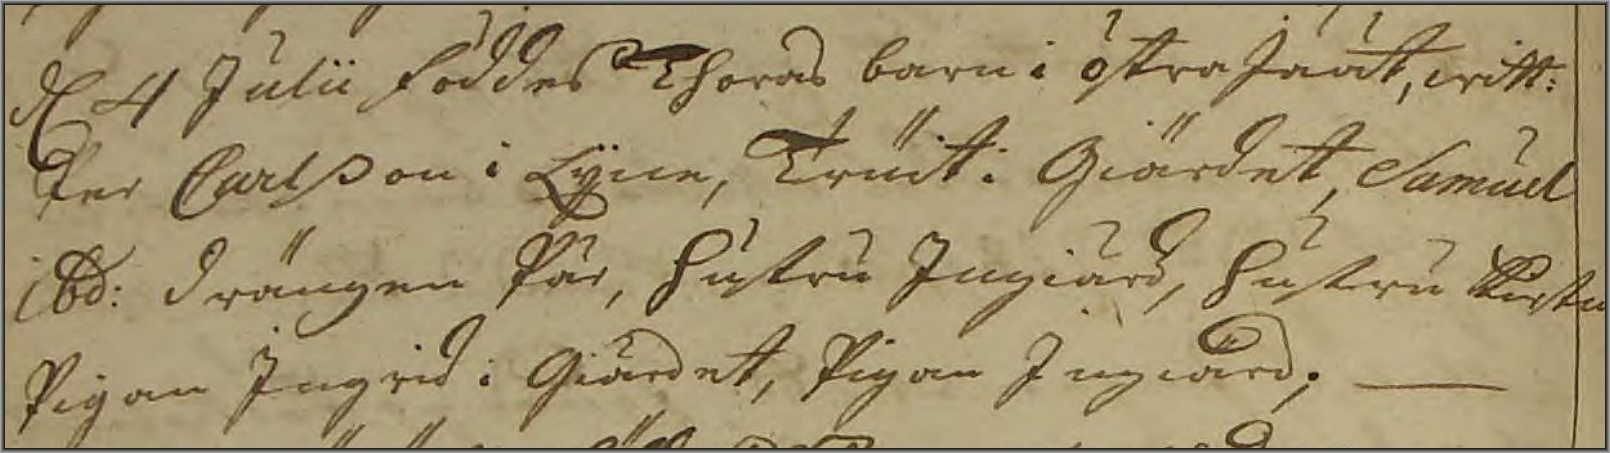 d 4 Julii föddes Thoras barn i östra
Per Carlsson i Lÿne, Truit i Giärdet, Samuel
ibd: drängen Pär, hustru Ingiärd, hustru Kirstin
Pigan Ingrid i Giärdet, Pigan Ingiärd;